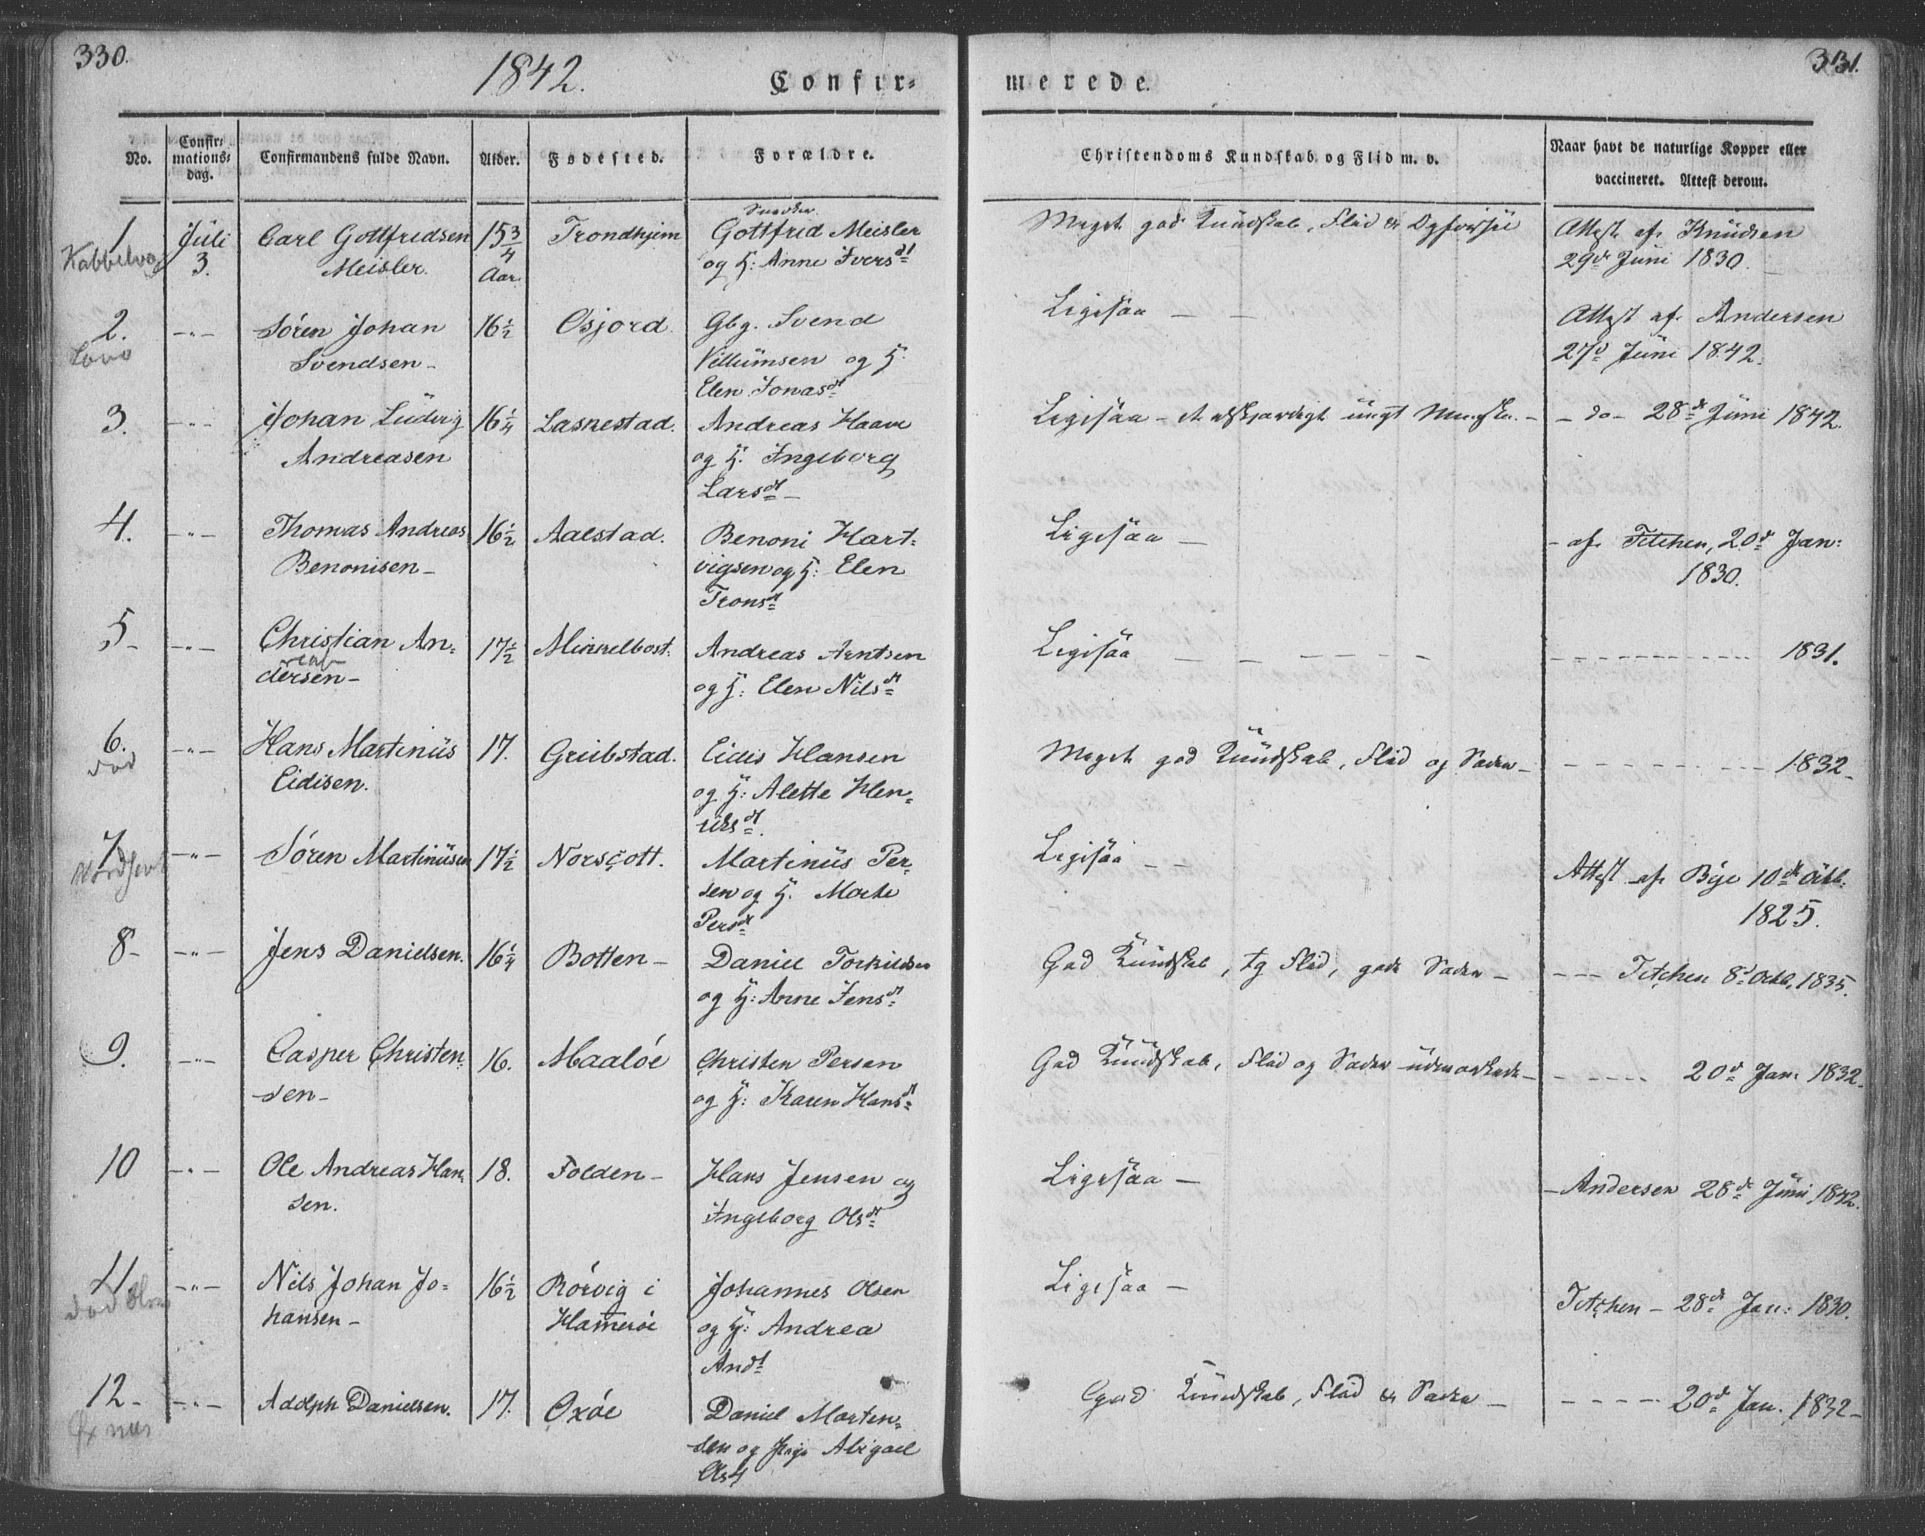 330.
1842.
Confir-
merede.
331.
No.
Confir-
mations-
dag.
Confirmandens fulde Navn.
Alder.
Fødested.
Forældre.
Christendoms Kundskab og Flid m. v.
Naar havt de naturlige Kopper eller
vaccineret. Attest derom.
1
Kabbelvaa
Juli
3.
Carl Gottfredsen
Meisler.
15 3/4
Aar.
Trondhjem
Snedker
Gottfrid Meisler
og H: Anne Iversdt
Meget god Kundskab, Flid & Opførsel
Attest af Knudsen
29de Juni 1830.
2.
- " -
Sören Johan
Svendsen -
16 1/2
Osjord.
Gbg. Svend
Villumsen og H.
Elen Jonasdt
Ligesaa - -
Attest af Andersen
27d Juni 1842.
3.
- " -
Johan Ludvig
Andreasen
16 1/4
Laskestad.
Andreas Haave
og H. Ingeborg
Larsdt -
Ligesaa - et elskværdigt ungt Menske. -
- do - 28de Juni 1842.
4.
- " -
Thomas Andreas
Benonisen -
16 1/2
Aalstad.
Benoni Hart-
vigsen og H: Elen
Tronsdt
Ligesaa -
- af Tetchen, 20d Jan:
1830.
5 -
- " -
Christian An-
reas
dersen -
17 1/2
Mikkelbost.
Andreas Arntsen
og H: Elen Nilsdt
Ligesaa - - - - - -
- - - - - - - 1831.
6.
død
- " -
Hans Martinus
Eidisen.
17.
Grubstad.
Eidis Hansen
og H: Alette Hen-
riksdt.
Meget god Kundskab, Flid og Sæder -
- - - - - - - 1832 -
7.
- " -
Sören Martinusen
17 1/2
Norsgott.
Martinus Per-
sen og H. Marte
Persdt
Ligesaa - -
Attest af Bye 10de Octb:
1825.
8 -
- " -
Jens Danielsen.
16 1/4
Botten -
Daniel Torkildsen
og H: Anne Jensdt
God Kundskab, og Flid, gode Sæder -
- - - Tetchen 8d Octb. 1835.
9.
- " -
Casper Christen-
sen -
16.
Maalöe
Christen Persen
og H: Karen Hansdt
God Kundskab, Flid og Sæder udmærkede -
- - - - - 20d Jan: 1832.
10
- " -
Ole Andreas Han-
sen.
18.
Folden -
Hans Jensen og
Ingeborg Olsdt
Ligesaa -
- Andersen 28de Juni 1842.
11
død
- " -
Nils Johan Jo-
hansen -
16 1/2
Rörvig i
Hameröe
Johannes Olsen
og H: Andrea
Anddt
Ligesaa -
Tetchen - 28de Jan: 1830.
12 -
- " -
Adolph Danielsen.
17.
Oxöe
Daniel Marten-
sen og Abigael
God Kundskab, Flid & Sæder -
- - - - - 20d Jan. 1832 -